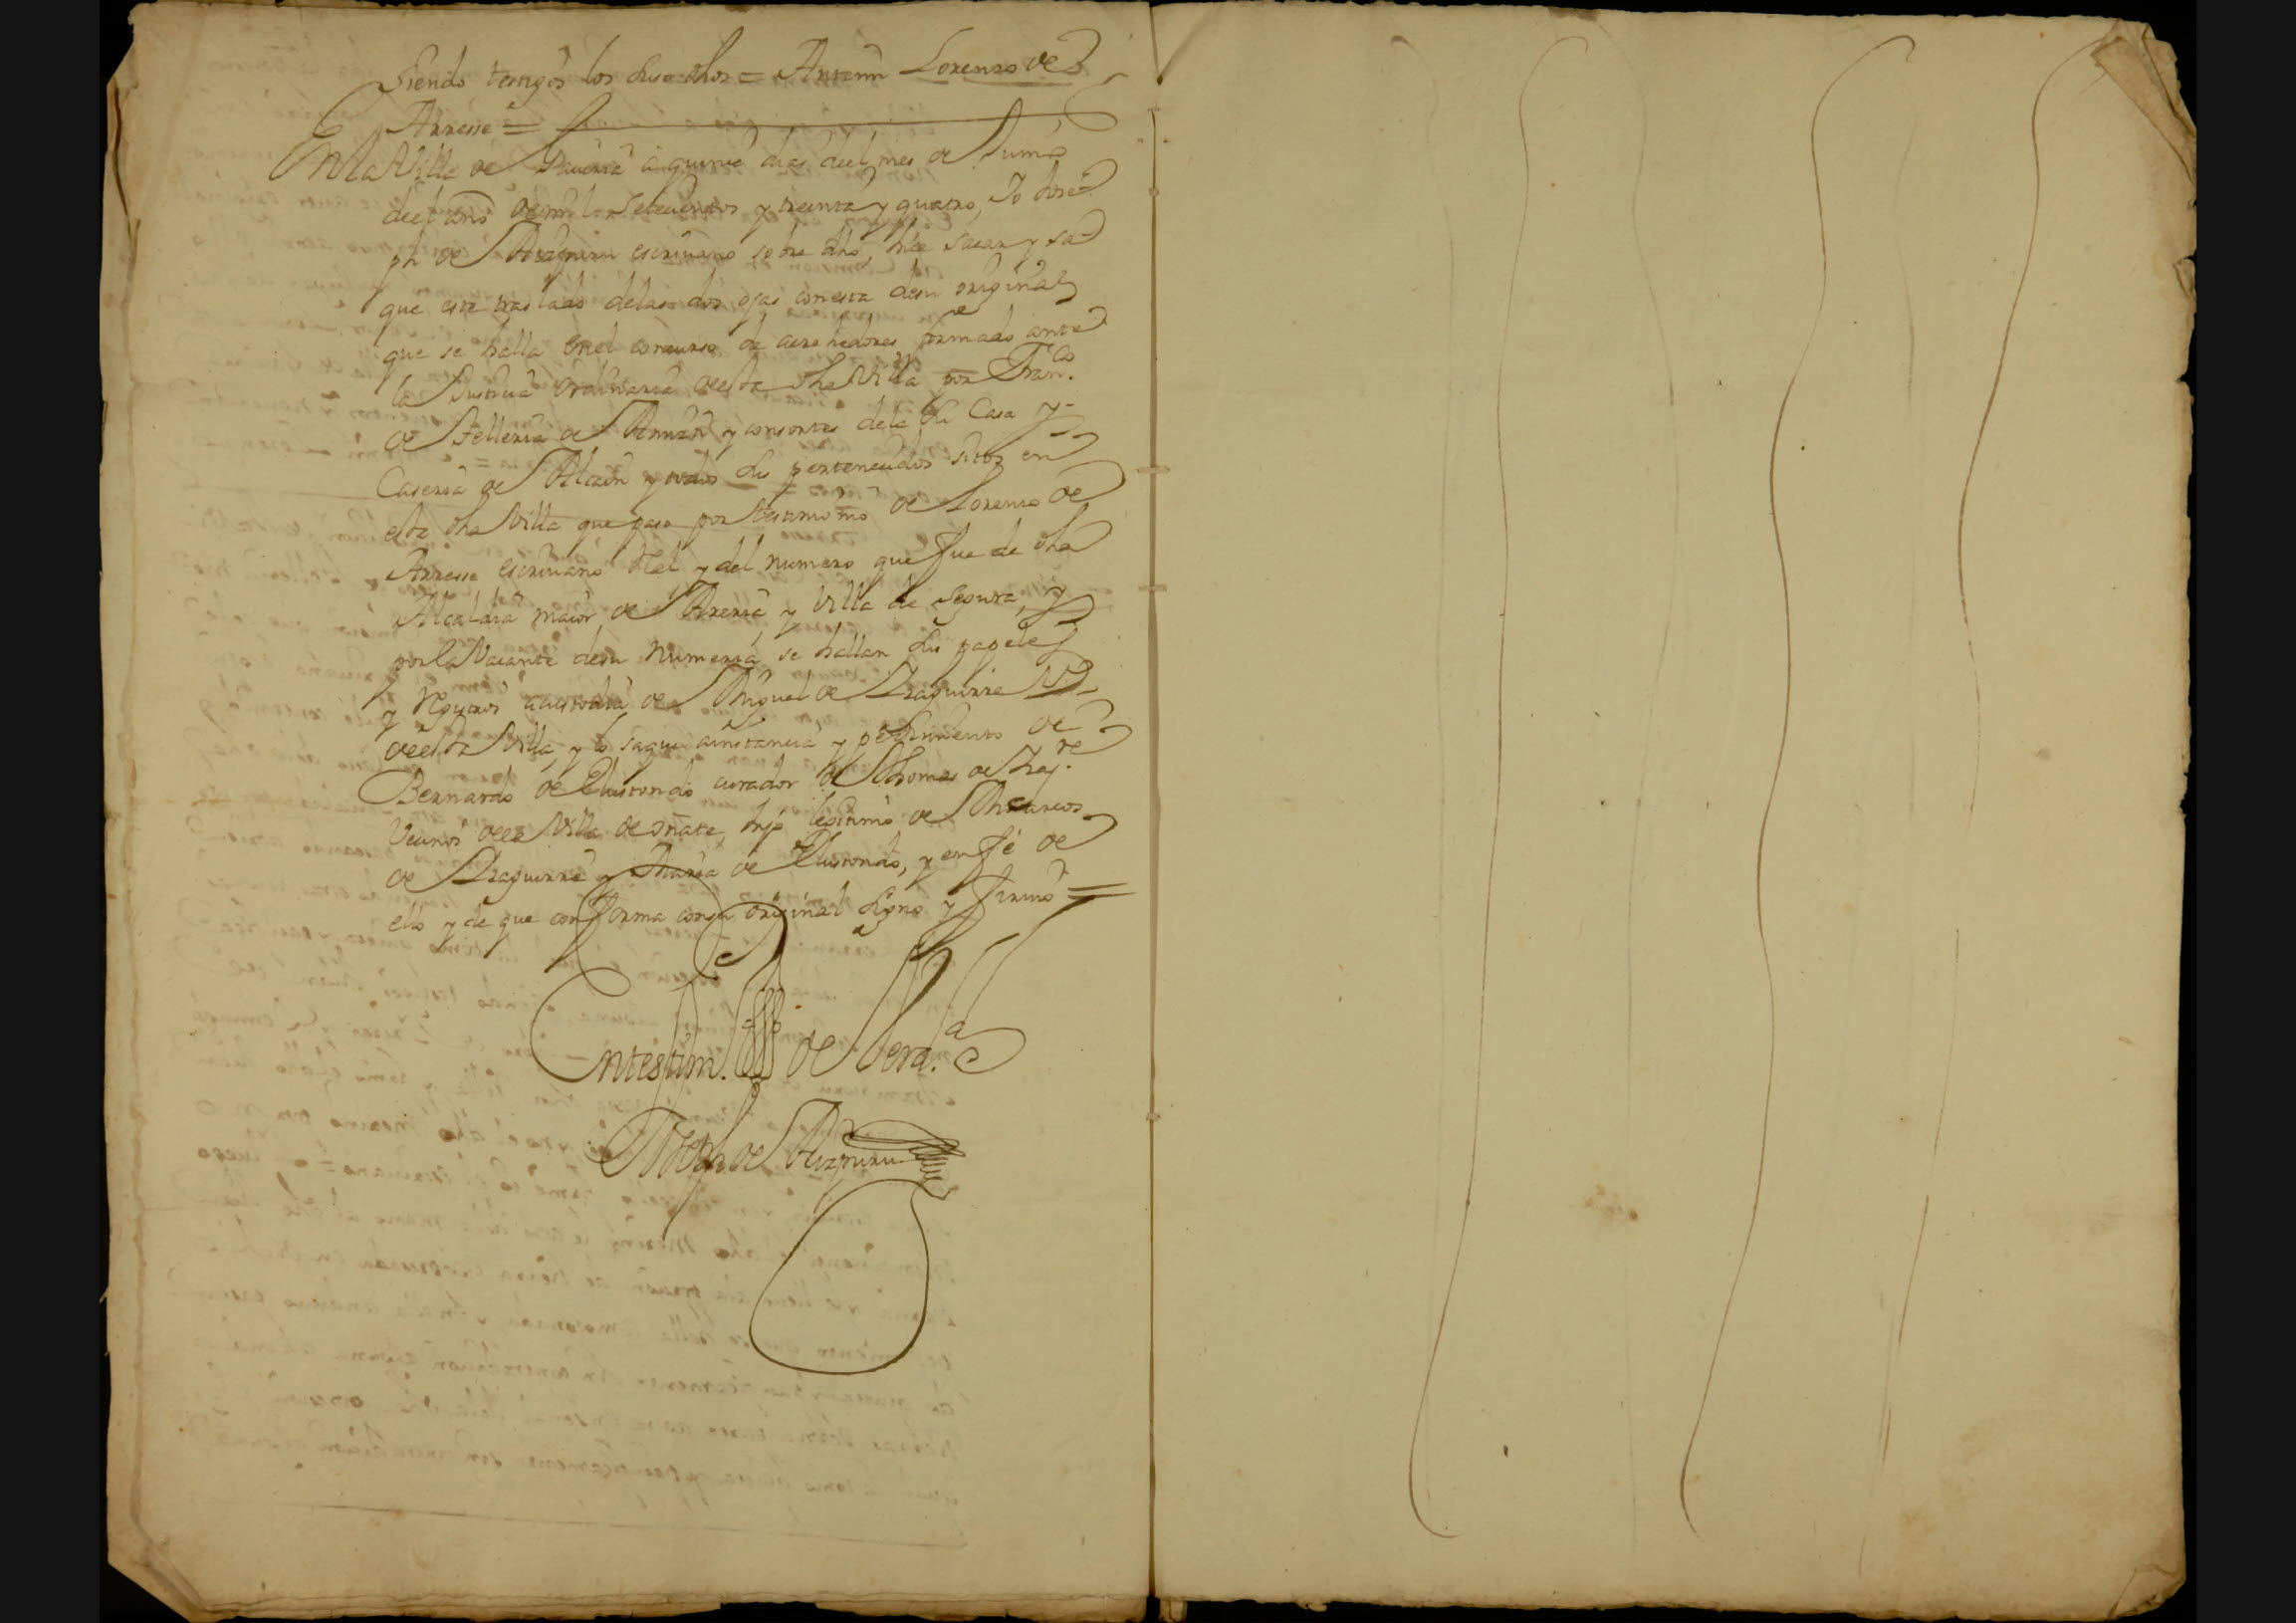 siendo testigos los suso dhos = Antemi Lorenzo de
Arresse =
En la Villa de a quince dias deel mes de Junio
deel año de mil setecientos y treinta y quatro, Yo Jose
ph de Aizpuru escriuano sobre dho, hice sacar y sa
que este traslado delas dos ojas con esta desu original
que se halla en el concurso de acrehedores formado ante
la Justicia ordinaria deesta dha Villa por Fran.co
de Telleria de y consortes dela Casa y
Caseria de Alcain y todos sus pertenecidos sitos en
esta dha Villa que paso por testimonio de Lorenzo de
Arresse escriuano Rel y del numero que fue de dha
Alcaldia maior de Areria y Villa de Segura, y
por la Vacante desu Numeria se hallan sus papeles
y rexistros a custodia de Miguel de Yraguirre
deesta Villa, y lo saque a instancia y pedimento de
Bernardo de Elustondo curador de Thomas de Yrag.re
Vecinos dela Villa de oñate, hijo lexitimo de Marcos
de Yraguirre y Maria de Elustondo, y en fe de
ello y de que conforma con su original signo y firmo =
En testim. de Verd.a
Joseph de Aizpuru